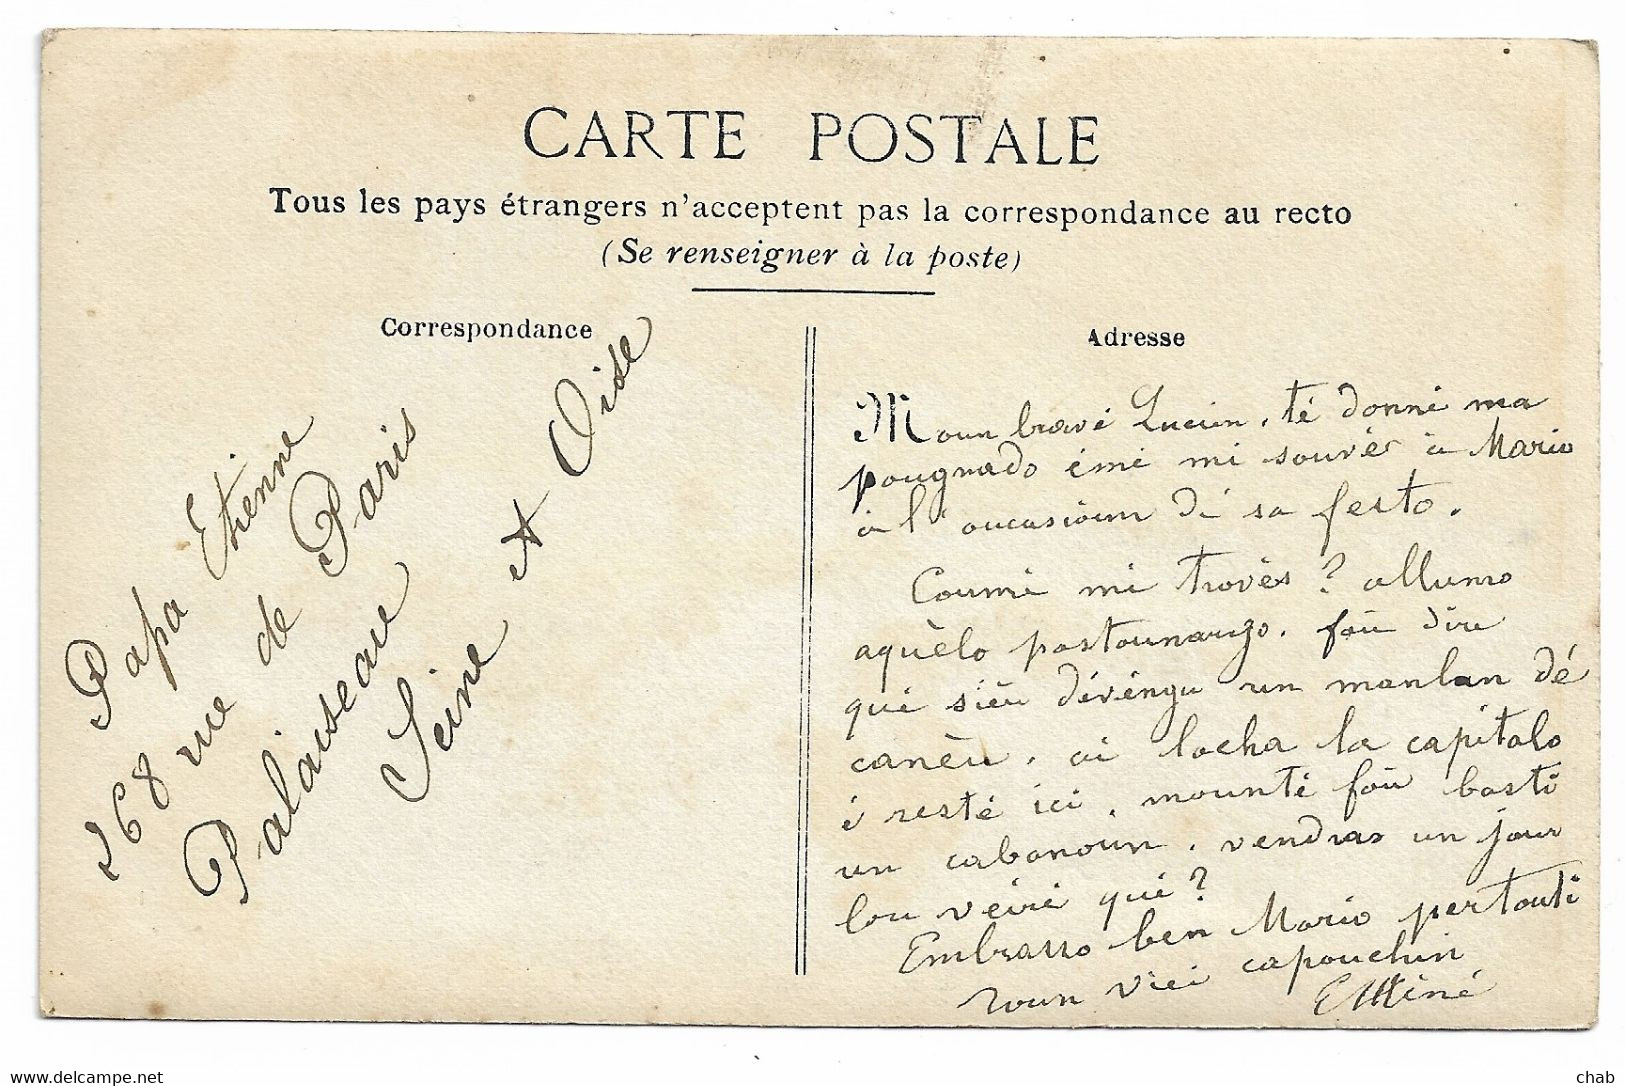 CARTE POSTALE
Tous les pays étrangers n'acceptent pas la correspondance au recto
(Se renseigner à la poste)
Correspondance
Adresse
Papa Etienne
268 rue de Paris
Palaiseau
Seine & Oise
Moun bravé Lucien, té donné ma
pougnado émé mi souvèr à Mario
à l'oucasioun dé sa festo.
Coumé mi trovès? allumo
aquèlo pastounargo. fòu dire
qué sièu dévéngu un manlan dé
canèu, ai lacha la capitalo
é resté ici, mounté fòu basti
un cabanoun, vendras un jour
lou véiré qué?
Embrasso ben Mario per touti
toun viei capouchin
Ettiné
www.delcampe.net
chab